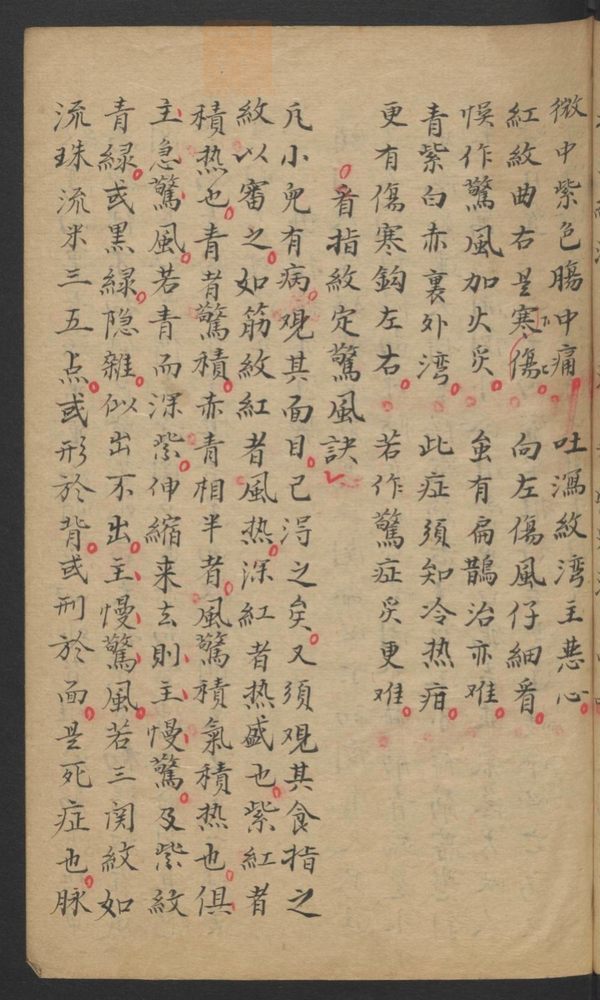 微中紫色腸中痛 吐瀉紋湾主悪心
紅紋曲右是寒傷 向左傷風仔細看
悞作驚風加火炙 虽有扁鵲治亦难
青紫白赤裏外湾 此症須知冷热疳
更有傷寒鈎左右 若作驚症炙更难
看指紋定驚風訣
凡小兒有病觀其面目已淂之矣又須观其食指之
紋以審之如筋紋紅者風热深紅者热盛也紫紅者
積热也青者驚積赤青相半者風驚積氣積热也俱
主急驚風若青而深紫伸縮来去則主慢驚及紫紋
青緑或黑緑隐雜似出不出主慢驚風若三関紋如
流珠流米三五点或形於背或刑於面是死症也脉